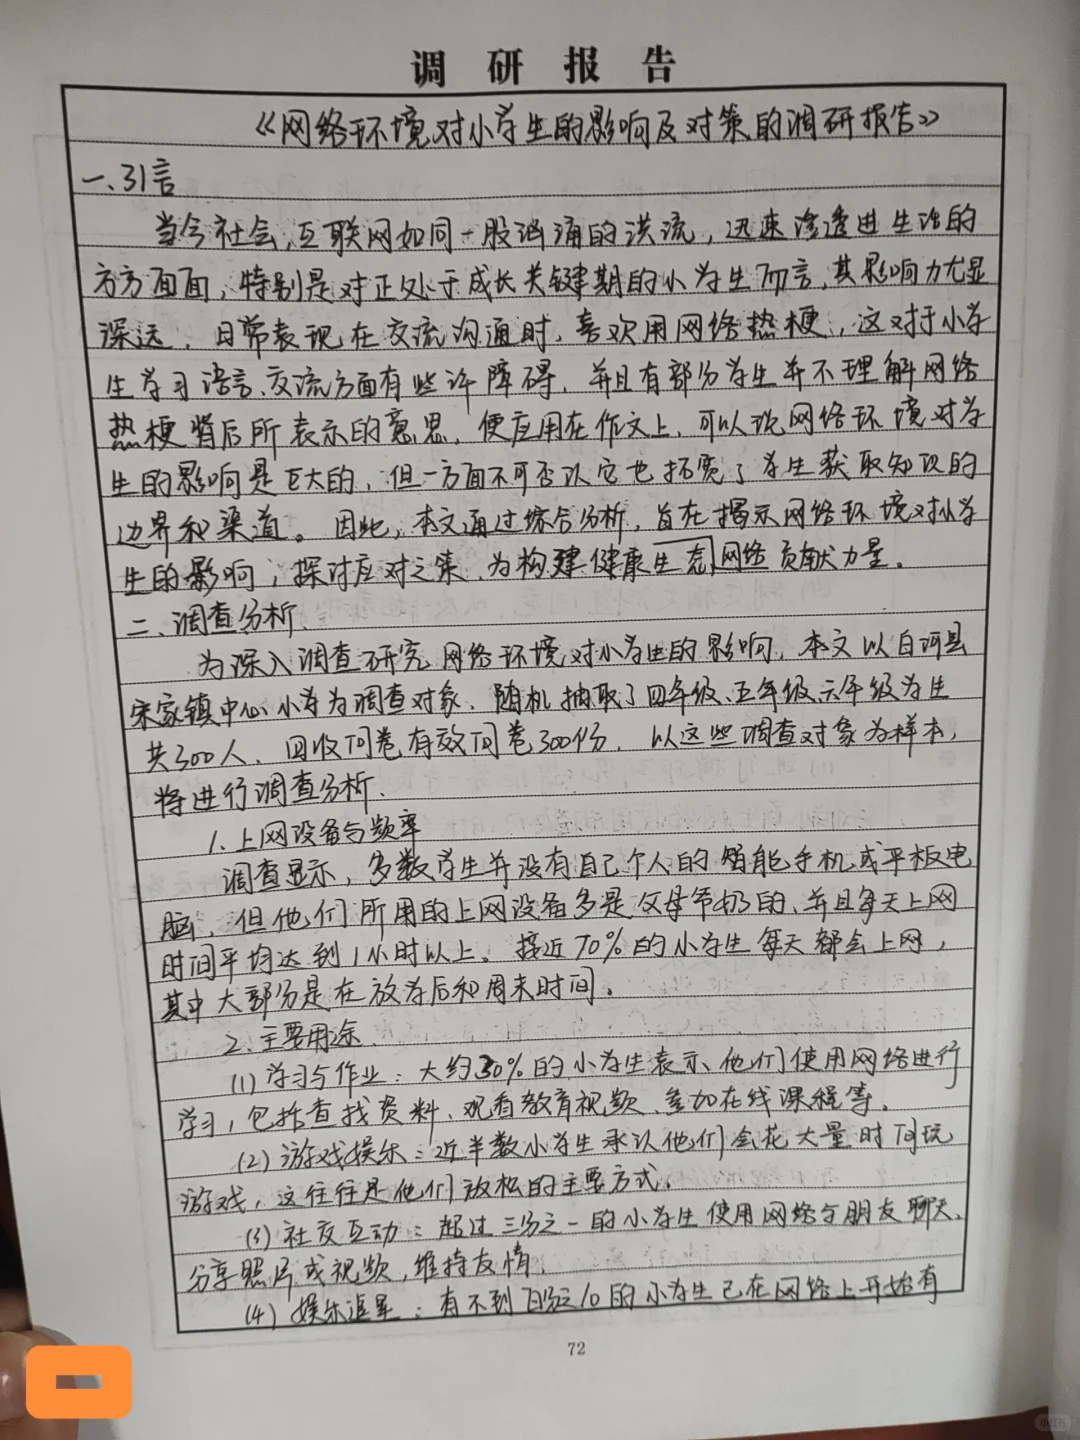 调研报告
《网络环境对小学生的影响及对策的调研报告》
一、引言
当今社会,互联网如同一股汹涌的洪流,迅速渗透进生活的
方方面面,特别是对正处于成长关键期的小学生而言,其影响力尤显
深远。日常表现在交流沟通时,喜欢用网络热梗,这对于小学
生学习语言、交流方面有些许障碍,并且有部分学生并不理解网络
热梗背后所表示的意思,便应用在作文上,可以说网络环境对学
生的影响是巨大的,但一方面不可否认它也拓宽了学生获取知识的
边界和渠道。因此,本文通过综合分析,旨在揭示网络环境对小学
生的影响,探讨应对之策,为构建健康生态网络贡献力量。
二、调查分析
为深入调查研究网络环境对小学生的影响,本文以白河县
宋家镇中心小学为调查对象,随机抽取了四年级、五年级、六年级学生
共300人,回收问卷有效问卷300份,以这些调查对象为样本,
将进行调查分析.
1.上网设备与频率
调查显示,多数学生并没有自己个人的智能手机或平板电
脑,但他们所用的上网设备多是父母爷奶的,并且每天上网
时间平均达到1小时以上。接近70%的小学生每天都会上网,
其中大部分是在放学后和周末时间。
2.主要用途
(1)学习与作业:大约30%的小学生表示、他们使用网络进行
学习,包括查找资料、观看教育视频、参加在线课程等。
(2)游戏娱乐:近半数小学生承认他们会花大量时间玩
游戏,这往往是他们放松的主要方式。
(3)社交互动:超过三分之一的小学生使用网络与朋友聊天、
分享照片或视频,维持友情.
(4)娱乐追星:有不到百分之10的小学生已在网络上开始有
72